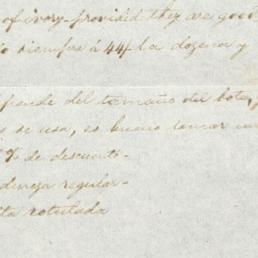 of ivory - provided they are good
siempre á 44/ la dozena y
depende del tamaño del bote,
se usa, es bueno
% de descuento -
regular -
rotulada